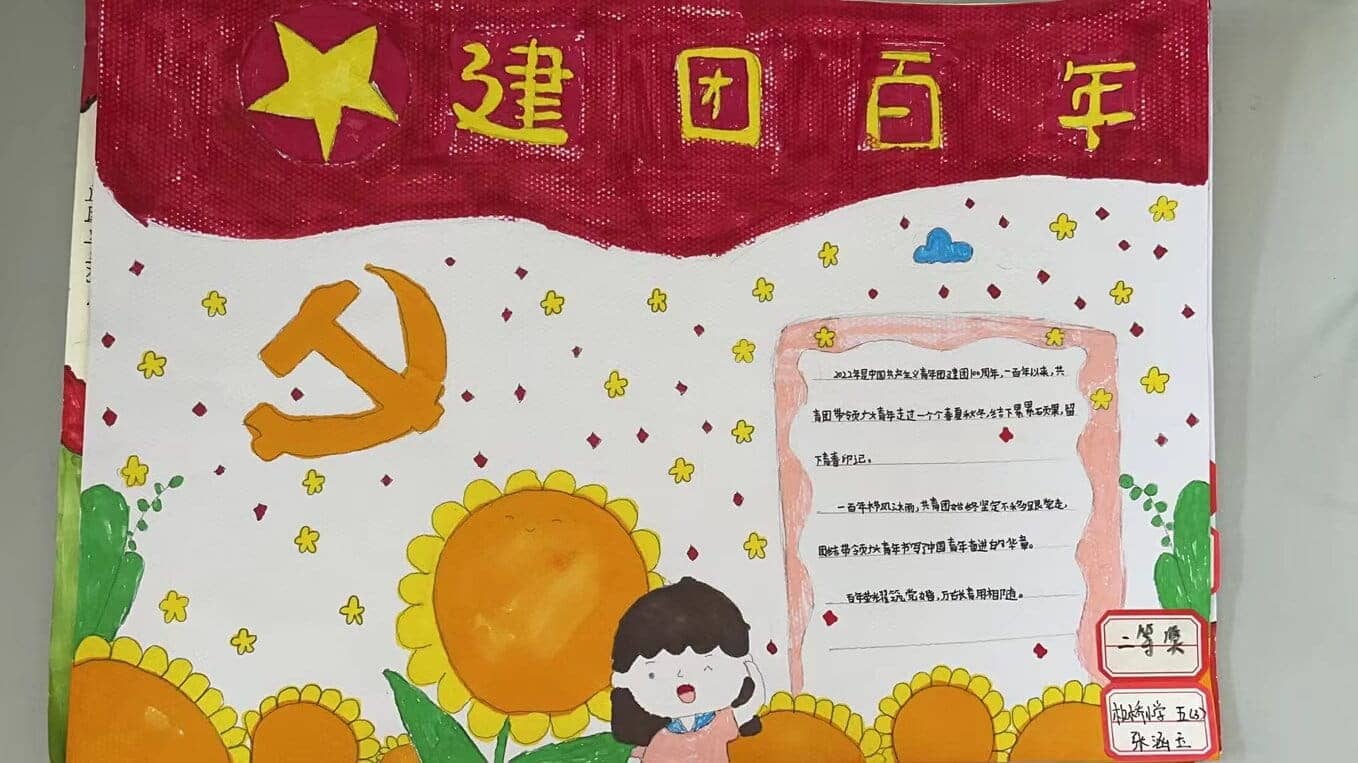 建团百年
2022年是中国共产主义青年团建团100周年,一百年以来,共
青团带领广大青年走过一个个春夏秋冬,结下累累硕果,留
下青春印记。
一百年栉风沐雨,共青团始终坚定不移跟党走,
团结带领广大青年书写了中国青年奋进的华章。
百年荣光耀
二等奖
小学 五(3)
张涵玉